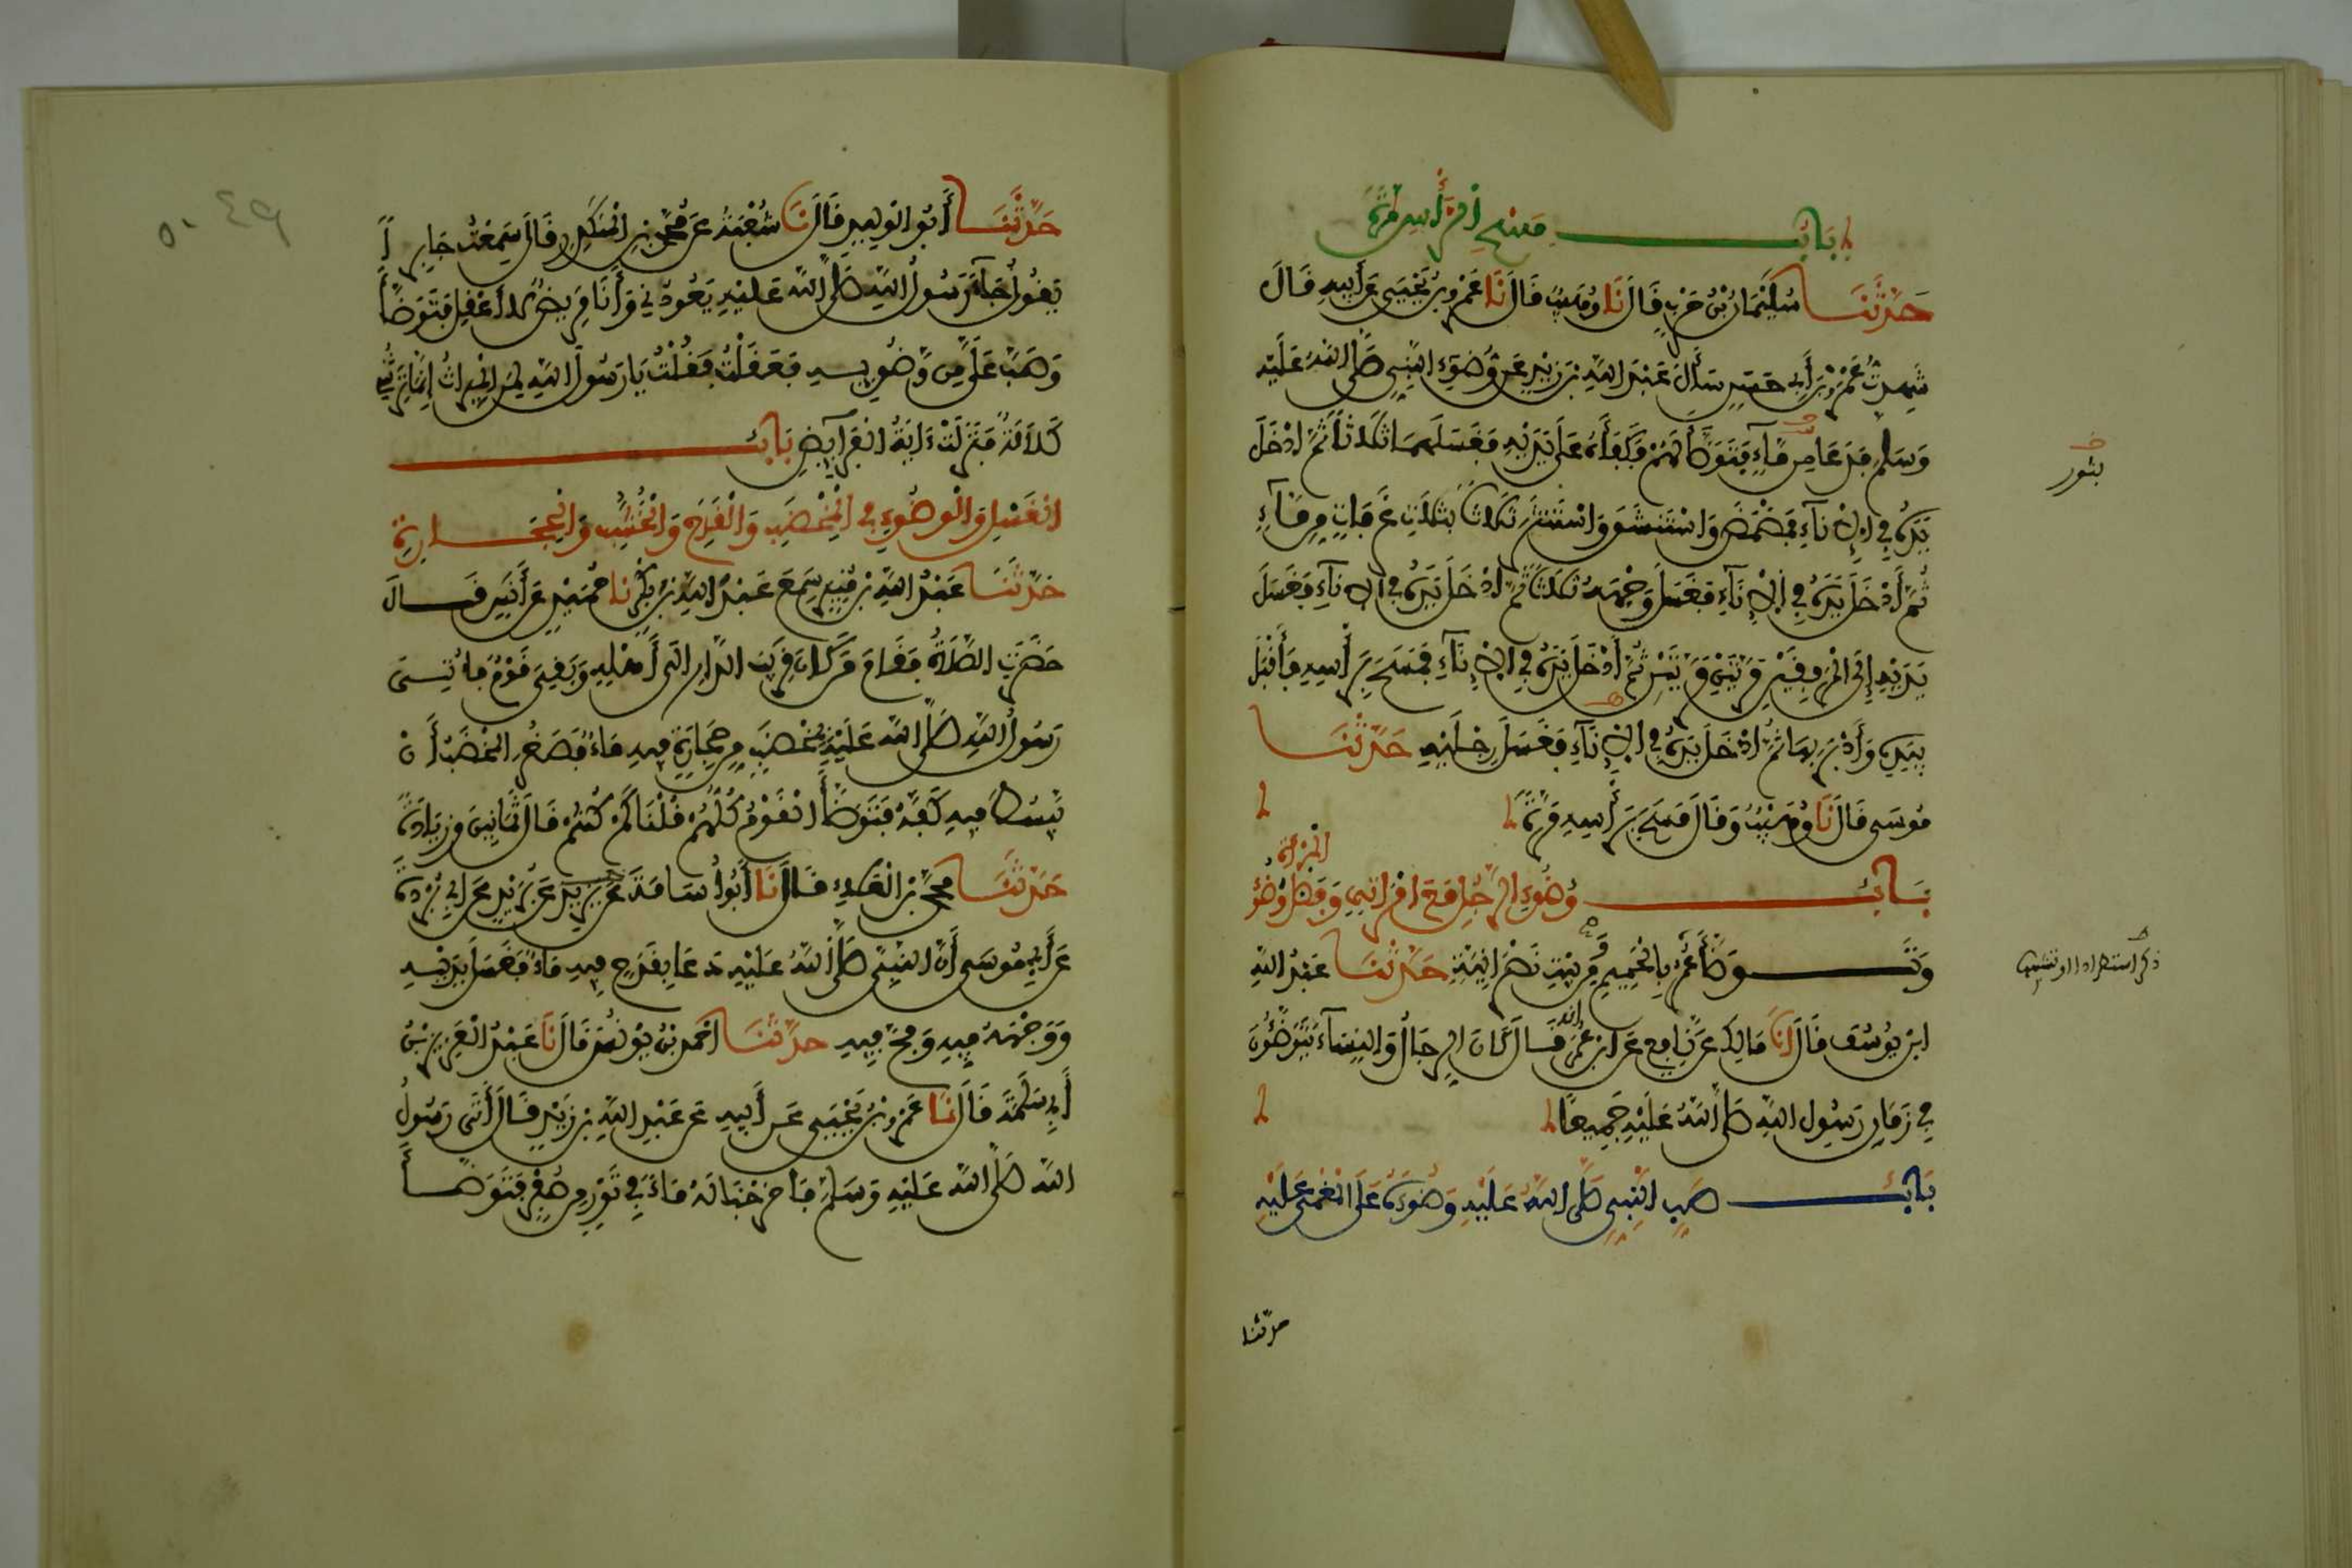 بَابُ مَسْحِ الرَّأْسِ مَرَّةً
حَدَّثَنَا سُلَيْمَانُ بْنُ حَرْبٍ قَالَ نَا وُهَيْبٌ قَالَ نَا عَمْرُو بْنُ يَحْيَى عَنْ أَبِيهِ قَالَ
شَهِدتُّ عَمْرَو بْنَ أَبِي حَسَنٍ سَأَلَ عَبْدَ اللَّهِ بْنَ زَيْدٍ عَنْ وُضُوءِ النَّبِيِّ صَلَّى اللَّهُ عَلَيْهِ
وَسَلَّمَ فَدَعَا مِن مَّاءٍ فَتَوَضَّأَ لَهُمْ فَكَفَأَهُ عَلَى يَدَيْهِ فَغَسَلَهمَا ثَلَاثًا ثُمَّ ادْخَلَ
بتور
يَدَهُ فِي الْإِنَاءِ فَمَضْمَضَ وَاسْتَنشَقَ وَاسْتَنثَرَ ثَلَاثًا بِثَلَاثِ غَرَفَاتٍ مِن مَّاءٍ
ثُمَّ أَدْخَلَ يَدَهُ فِي الْإِنَاءِ فَغَسَلَ وَجْهَهُ ثَلَاثًا ثُمَّ ادْخَلَ يَدَهُ فِي الْإِنَاءِ فَغَسَلَ
يَدَيْهِ إِلَى الْمِرْفَقَيْنِ مَرَّتَيْنِ مَرَّتَيْنِ ثُمَّ أَدْخَلَ يَدَهُ فِي الْإِنَاءِ فَمَسَحَ بِرَأْسِهِ فَأَقْبَلَ
بِيَدِهِ وَأَدْبَرَ بِهَا ثُمَّ ادْخَلَ يَدَهُ فِي الْإِنَاءِ فَغَسَلَ رِجْلَيْهِ حَدَّثَنَا
مُوسَى قَالَ نَا وُهَيْبٌ وَقَالَ مَسَحَ بِرَأْسِهِ مَرَّةً
بَابُ وُضُوءِ الرَّجُلِ مَعَ امْرَأَتِهِ وَفَضْلِ وَضُوءِ
الْمَرْأَةِ
وَتَوَضَّأَ عُمَرُ بِالْحَمِيمِ وَمِن بَيْتِ نَصْرَانِيَّةٍ حَدَّثَنَا عَبْدُ اللَّهِ
ابْنُ يُوسُفَ قَالَ انَا مَالِكٌ عَن نَّافِعٍ عَنِ ابْنِ عُمَرَ انه قَالَ كَانَ الرِّجَالُ وَالنِّسَاءُ يَتَوَضَّئُونَ
فِي زَمَانِ رَسُولِ اللَّهِ صَلَّى اللَّهُ عَلَيْهِ جَمِيعًا
بَابُ صَبِّ النَّبِيِّ صَلَّى اللَّهُ عَلَيْهِ وَضُوءَهُ عَلَى الْمُغْمَى عَلَيْهِ
حدثنا
٤٩ ٥٠
حَدَّثَنَا أَبُو الْوَلِيدِ قَالَ نَا شُعْبَةُ عَن مُّحَمَّدِ بْنِ الْمُنكَدِرِ قَالَ سَمِعْتُ جَابِرًا
يَقُولُ جَاءَ رَسُولُ اللَّهِ صَلَّى اللَّهُ عَلَيْهِ يَعُودُنِي وَأَنَا مَرِيضٌ لَا أَعْقِلُ فَتَوَضَّأَ
وَصَبَّ عَلَيَّ مِن وَّضُوئِهِ فَعَقَلْتُ فَقُلْتُ يَا رَسُولَ اللَّهِ لِمَنِ الْمِيرَاثُ إِنَّمَا يَرِثُنِي
كَلَالَةٌ فَنَزَلَتْ ءَايَةُ الْفَرَائِضِ بَابُ
الْغَسْلِ وَالْوُضُوءِ فِي الْمِخْضَبِ وَالْقَدَحِ وَالْخُشُبِ وَالْحِجَارَةِ
حَدَّثَنَا عَبْدُ اللَّهِ بْنُ مُنِيرٍ سَمِعَ عَبْدَ اللَّهِ بْنَ بَكْرٍ نا حُمَيْدٌ عَنْ أَنَسٍ قَالَ
حَضَرَتِ الصَّلَاةُ فَقَامَ مَن كَانَ قَرِيبَ الدَّارِ إِلَى أَهْلِهِ وَبَقِيَ قَوْمٌ فَأُتِيَ
رَسُولُ اللَّهِ صَلَّى اللَّهُ عَلَيْهِ بِمِخْضَبٍ مِن حِجَارَةٍ فِيهِ مَاءٌ فَصَغُرَ الْمِخْضَبُ أَنْ
يَبْسُطَ فِيهِ كَفَّهُ فَتَوَضَّأَ الْقَوْمُ كُلُّهُمْ قُلْنَا كَمْ كُنتُمْ قَالَ ثَمَانِينَ وَزِيَادَةً
حَدَّثَنَا مُحَمَّدُ بْنُ الْعَلَاءِ قَالَ نَا أَبُو أُسَامَةَ عَن بُرَيْدٍ عَنْ أَبِي بُرْدَةَ
عَنْ أَبِي مُوسَى أَنَّ النَّبِيَّ صَلَّى اللَّهُ عَلَيْهِ دَعَا بِقَدَحٍ فِيهِ مَاءٌ فَغَسَلَ يَدَيْهِ
وَوَجْهَهُ فِيهِ وَمَجَّ فِيهِ حدَّثَنَا أَحْمَدُ بْنُ يُونُسَ قَالَ نَا عَبْدُ الْعَزِيزِ بْنُ
أَبِي سَلَمَةَ قَالَ نَا عَمْرُو بْنُ يَحْيَى عَن أَبِيهِ عَن عَبْدِ اللَّهِ بْنِ زَيْدٍ قَالَ أَتَى رَسُولُ
اللَّهِ صَلَّى اللَّهُ عَلَيْهِ وَسَلَّمَ فَأَخْرَجْنَا لَهُ مَاءً فِي تَوْرٍ مِن صُفْرٍ فَتَوَضَّأَ